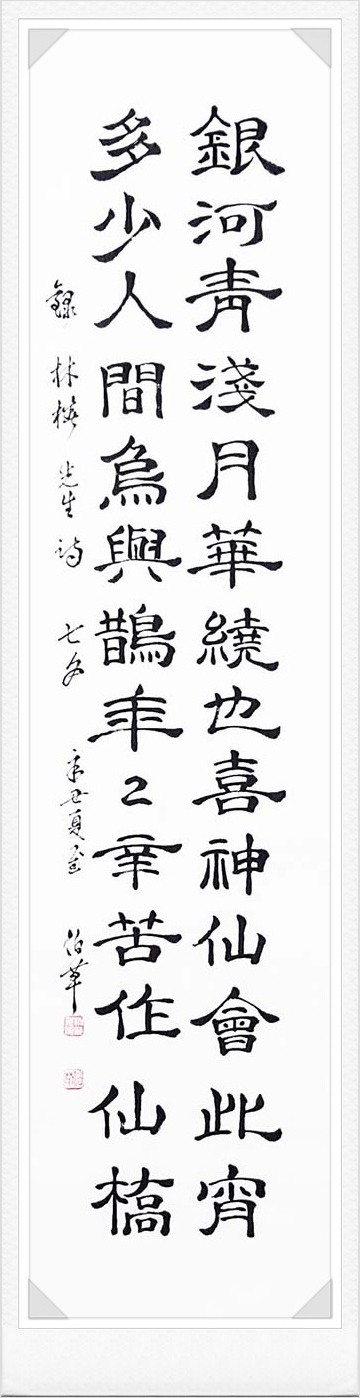 銀河青淺月華繞也喜神仙會此宵
多少人間烏與鵲年〻辛苦作仙橋
錄 林梅 先生詩 七夕 辛丑夏至 伯華